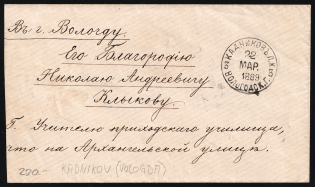 Въ г. Вологду.
Его Благородію
Николаю Андреевичу
Клыкову.
Г. Учителю приходскаго училища,
что на Архангельской улицѣ.
КАДНИКОВЪ
22
МАР.
1889
ВОЛОГОД. Г.
220.- KADNIKOV (VOLOGDA)